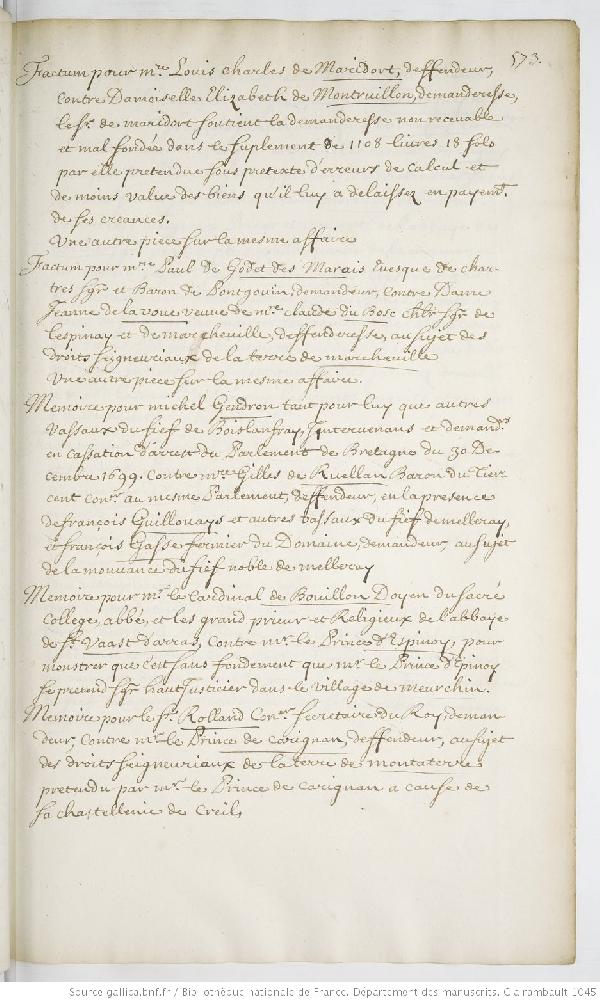 573.
Factum pour mre Louis Charles de Maridort, deffendeur,
contre Damoiselle Elizabeth de Montruillon, demanderesse,
le Sr. de maridort soutient la demanderesse non recevable
et mal fondée dans le suplement de 1108 livres 18 sols
par elle pretendue sous pretexte d'erreurs de calcul et
de moins value des biens qu'il luy a delaissez en payemt.
de ses creances.
Une autre piece sur la mesme affaire
Factum pour mre Paul de Godet des Marais Evesque de char-
tres sgr. et Baron de Pontgouin, demandeur, contre Dame
Jeanne de la voue veuve de mre. claude du Bosc chlr sgr. de
lespinay et de marcheville, deffenderesse, au sujet des
droits seigneuriaux de la terre de marcheville
Une autre piece sur la mesme affaire.
Memoire pour michel Gendron tant pour luy que autres
vassaux du fief de Boislanfray, Intervenans et demandrs
en cassation d'arrest du Parlement de Bretagne du 30 De-
cembre 1699. contre mre Gilles de Ruellan Baron du Tier-
cent conr. au mesme Parlement, deffendeur, en la presence
de françois Guillouays et autres vassaux du fief de melleray,
et françois Gasse fermier du Domaine, demandeur, au sujet
de la mouvance du fief noble de melleray
Memoire pour mr. le Cardinal de Bouillon Doyen du sacré
College, abbé, et les grand prieur et Religieux de l'abbaye
de St. Vaast d'arras, contre mr. le Prince d'Espinoy, pour
monstrer que c'est sans fondement que mr. le Prince d'Epinoy
se pretend sgr. haut Justicier dans le village de meurchin.
Memoire pour le Sr. Rolland conr. secretaire du Roy, deman
deur, contre mr. le Prince de carignan, deffendeur, au sujet
des droits seigneuriaux de la terre de montaterre
pretendu par mr. le Prince de carignan a cause de
sa chastellenie de Creil,
Source gallica.bnf.fr / Bibliothèque nationale de France. Département des manuscrits. Clairambault 1045